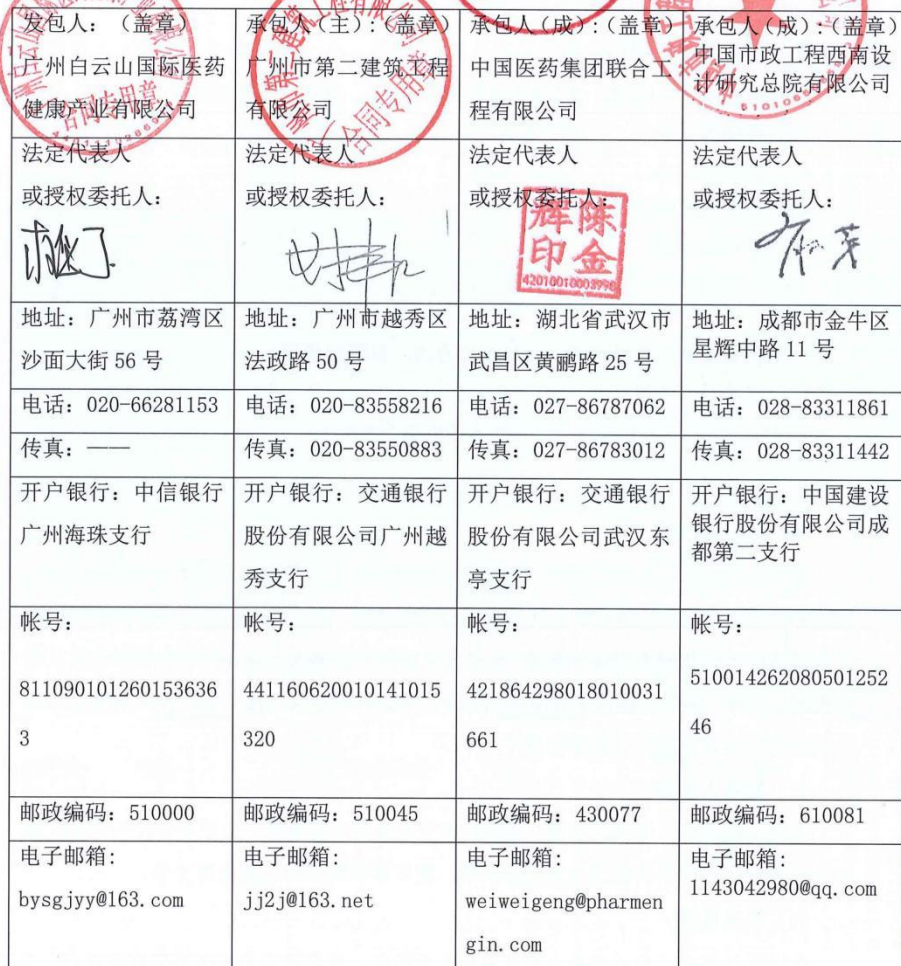 发包人：（盖章）
广州白云山国际医药
健康产业有限公司
承包人（主）:（盖章）
广州市第二建筑工程
有限公司
承包人（成）:（盖章）
中国医药集团联合工
程有限公司
承包人（成）:（盖章）
中国市政工程西南设
计研究总院有限公司
合同专用章
合同专用章
法定代表人
或授权委托人：
法定代表人
或授权委托人：
法定代表人
或授权委托人：
辉陈
印金
42010010003990
法定代表人
或授权委托人：
地址：广州市荔湾区
沙面大街 56 号
地址：广州市越秀区
法政路 50 号
地址：湖北省武汉市
武昌区黄鹂路 25 号
地址：成都市金牛区
星辉中路 11 号
电话：020-66281153
电话：020-83558216
电话：027-86787062
电话：028-83311861
传真：——
传真：020-83550883
传真：027-86783012
传真：028-83311442
开户银行：中信银行
广州海珠支行
开户银行：交通银行
股份有限公司广州越
秀支行
开户银行：交通银行
股份有限公司武汉东
亭支行
开户银行：中国建设
银行股份有限公司成
都第二支行
帐号：
811090101260153636
3
帐号：
441160620010141015
320
帐号：
421864298018010031
661
帐号：
510014262080501252
46
邮政编码：510000
邮政编码：510045
邮政编码：430077
邮政编码：610081
电子邮箱：
bysgjyy@163.com
电子邮箱：
jj2j@163.net
电子邮箱：
weiweigeng@pharmen
gin.com
电子邮箱：
1143042980@qq.com